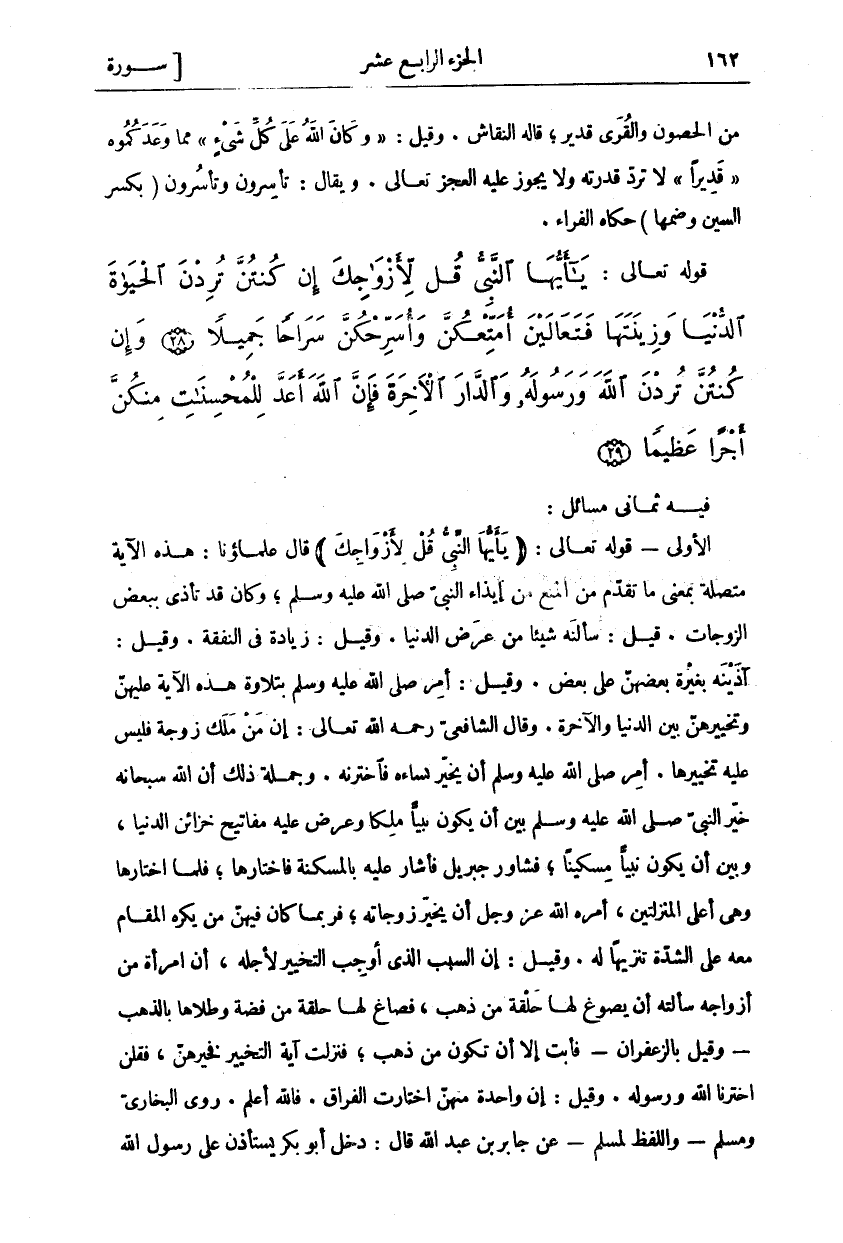 ١٦٢ الجزء الرابع عشر [ ســـورة
من الحصون والقُرَى قدير ؛ قاله النقاش . وقيل : « وَكَانَ اللهُ عَلَى كُلِّ شَيْءٍ » مما وَعَدَكُمُوه
« قَدِيرًا » لا تردّ قدرته ولا يجوز عليه العجز تعـالى . ويقال : تأسِرون وتأسُرون ( بكسر
السين وضمها ) حكاه الفراء .
قوله تعـالى : يَـٰٓأَيُّهَـا ٱلنَّبِىُّ قُــل لِّأَزْوَٰجِكَ إِن كُنتُنَّ تُرِدْنَ ٱلْحَيَوٰةَ
ٱلدُّنْيَـا وَزِينَتَهَا فَتَعَالَيْنَ أُمَتِّعْـكُنَّ وَأُسَرِّحْكُنَّ سَرَاحًا جَمِيـلًا ﴿٢٨﴾ وَإِن
كُنتُنَّ تُرِدْنَ ٱللَّهَ وَرَسُولَهُۥ وَٱلدَّارَ ٱلْأَخِرَةَ فَإِنَّ ٱللَّهَ أَعَدَّ لِلْمُحْسِنَـٰتِ مِنكُنَّ
أَجْرًا عَظِيمًا ﴿٢٩﴾
فيــه ثمـانى مسائل :
الأولى — قوله تعـالى : ( يَأَيُّهَا النَّبِيُّ قُلْ لِأَزْوَاجِكَ ) قال علمـاؤنا : هـذه الآية
متصلة بمعنى ما تقدّم من المنع من إيذاء النبيّ صلى الله عليه وسـلم ؛ وكان قد تأذى ببعض
الزوجات . قيـل : سألنَه شيئا من عرَض الدنيا . وقيـل : زيادة فى النفقة . وقيـل :
آذَيْنَه بغَيْرة بعضهنّ على بعض . وقيـل : أمِر صلى الله عليه وسلم بتلاوة هـذه الآية عليهنّ
وتخييرهنّ بين الدنيا والآخرة . وقال الشافعىّ رحمـه الله تعـالى : إن مَنْ مَلَك زوجة فليس
عليه تخييرها . أمِر صلى الله عليه وسلم أن يخيّر نساءه فآخترنه . وجمـلة ذلك أن الله سبحانه
خيّر النبيّ صـلى الله عليه وسـلم بين أن يكون نبيًّا مَلِكا وعرض عليه مفاتيح خزائن الدنيا ،
وبين أن يكون نبيًّا مِسكينًا ؛ فشاور جبريل فأشار عليه بالمسكنة فاختارها ؛ فلمـا اختارها
وهى أعلى المنزلتين ، أمره الله عز وجل أن يخيّر زوجاته ؛ فربمـا كان فيهنّ من يكره المقـام
معه على الشدّة تنزيهًا له . وقيـل : إن السبب الذى أوجب التخيير لأجله ، أن امرأة من
أزواجه سألته أن يصوغ لهـا حَلْقة من ذهب ، فصاغ لهـا حلقة من فضة وطلاها بالذهب
— وقيل بالزعفران — فأبت إلا أن تكون من ذهب ؛ فنزلت آية التخيير فخيرهنّ ، فقلن
اخترنا الله ورسوله . وقيل : إن واحدة منهنّ اختارت الفراق . فالله أعلم . روى البخارىّ
ومسلم — واللفظ لمسلم — عن جابر بن عبد الله قال : دخل أبو بكر يستأذن على رسول الله